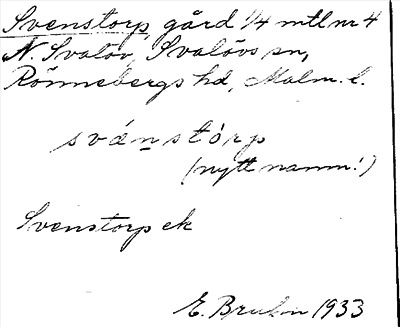 Svenstorp, gård 1/4 mtl nr 4
N. Svalöv, Svalövs sn,
Rönnebergs hd, Malm. l.
svánstórp
(nytt namn!)
Svenstorp ek
E. Bruhn 1933